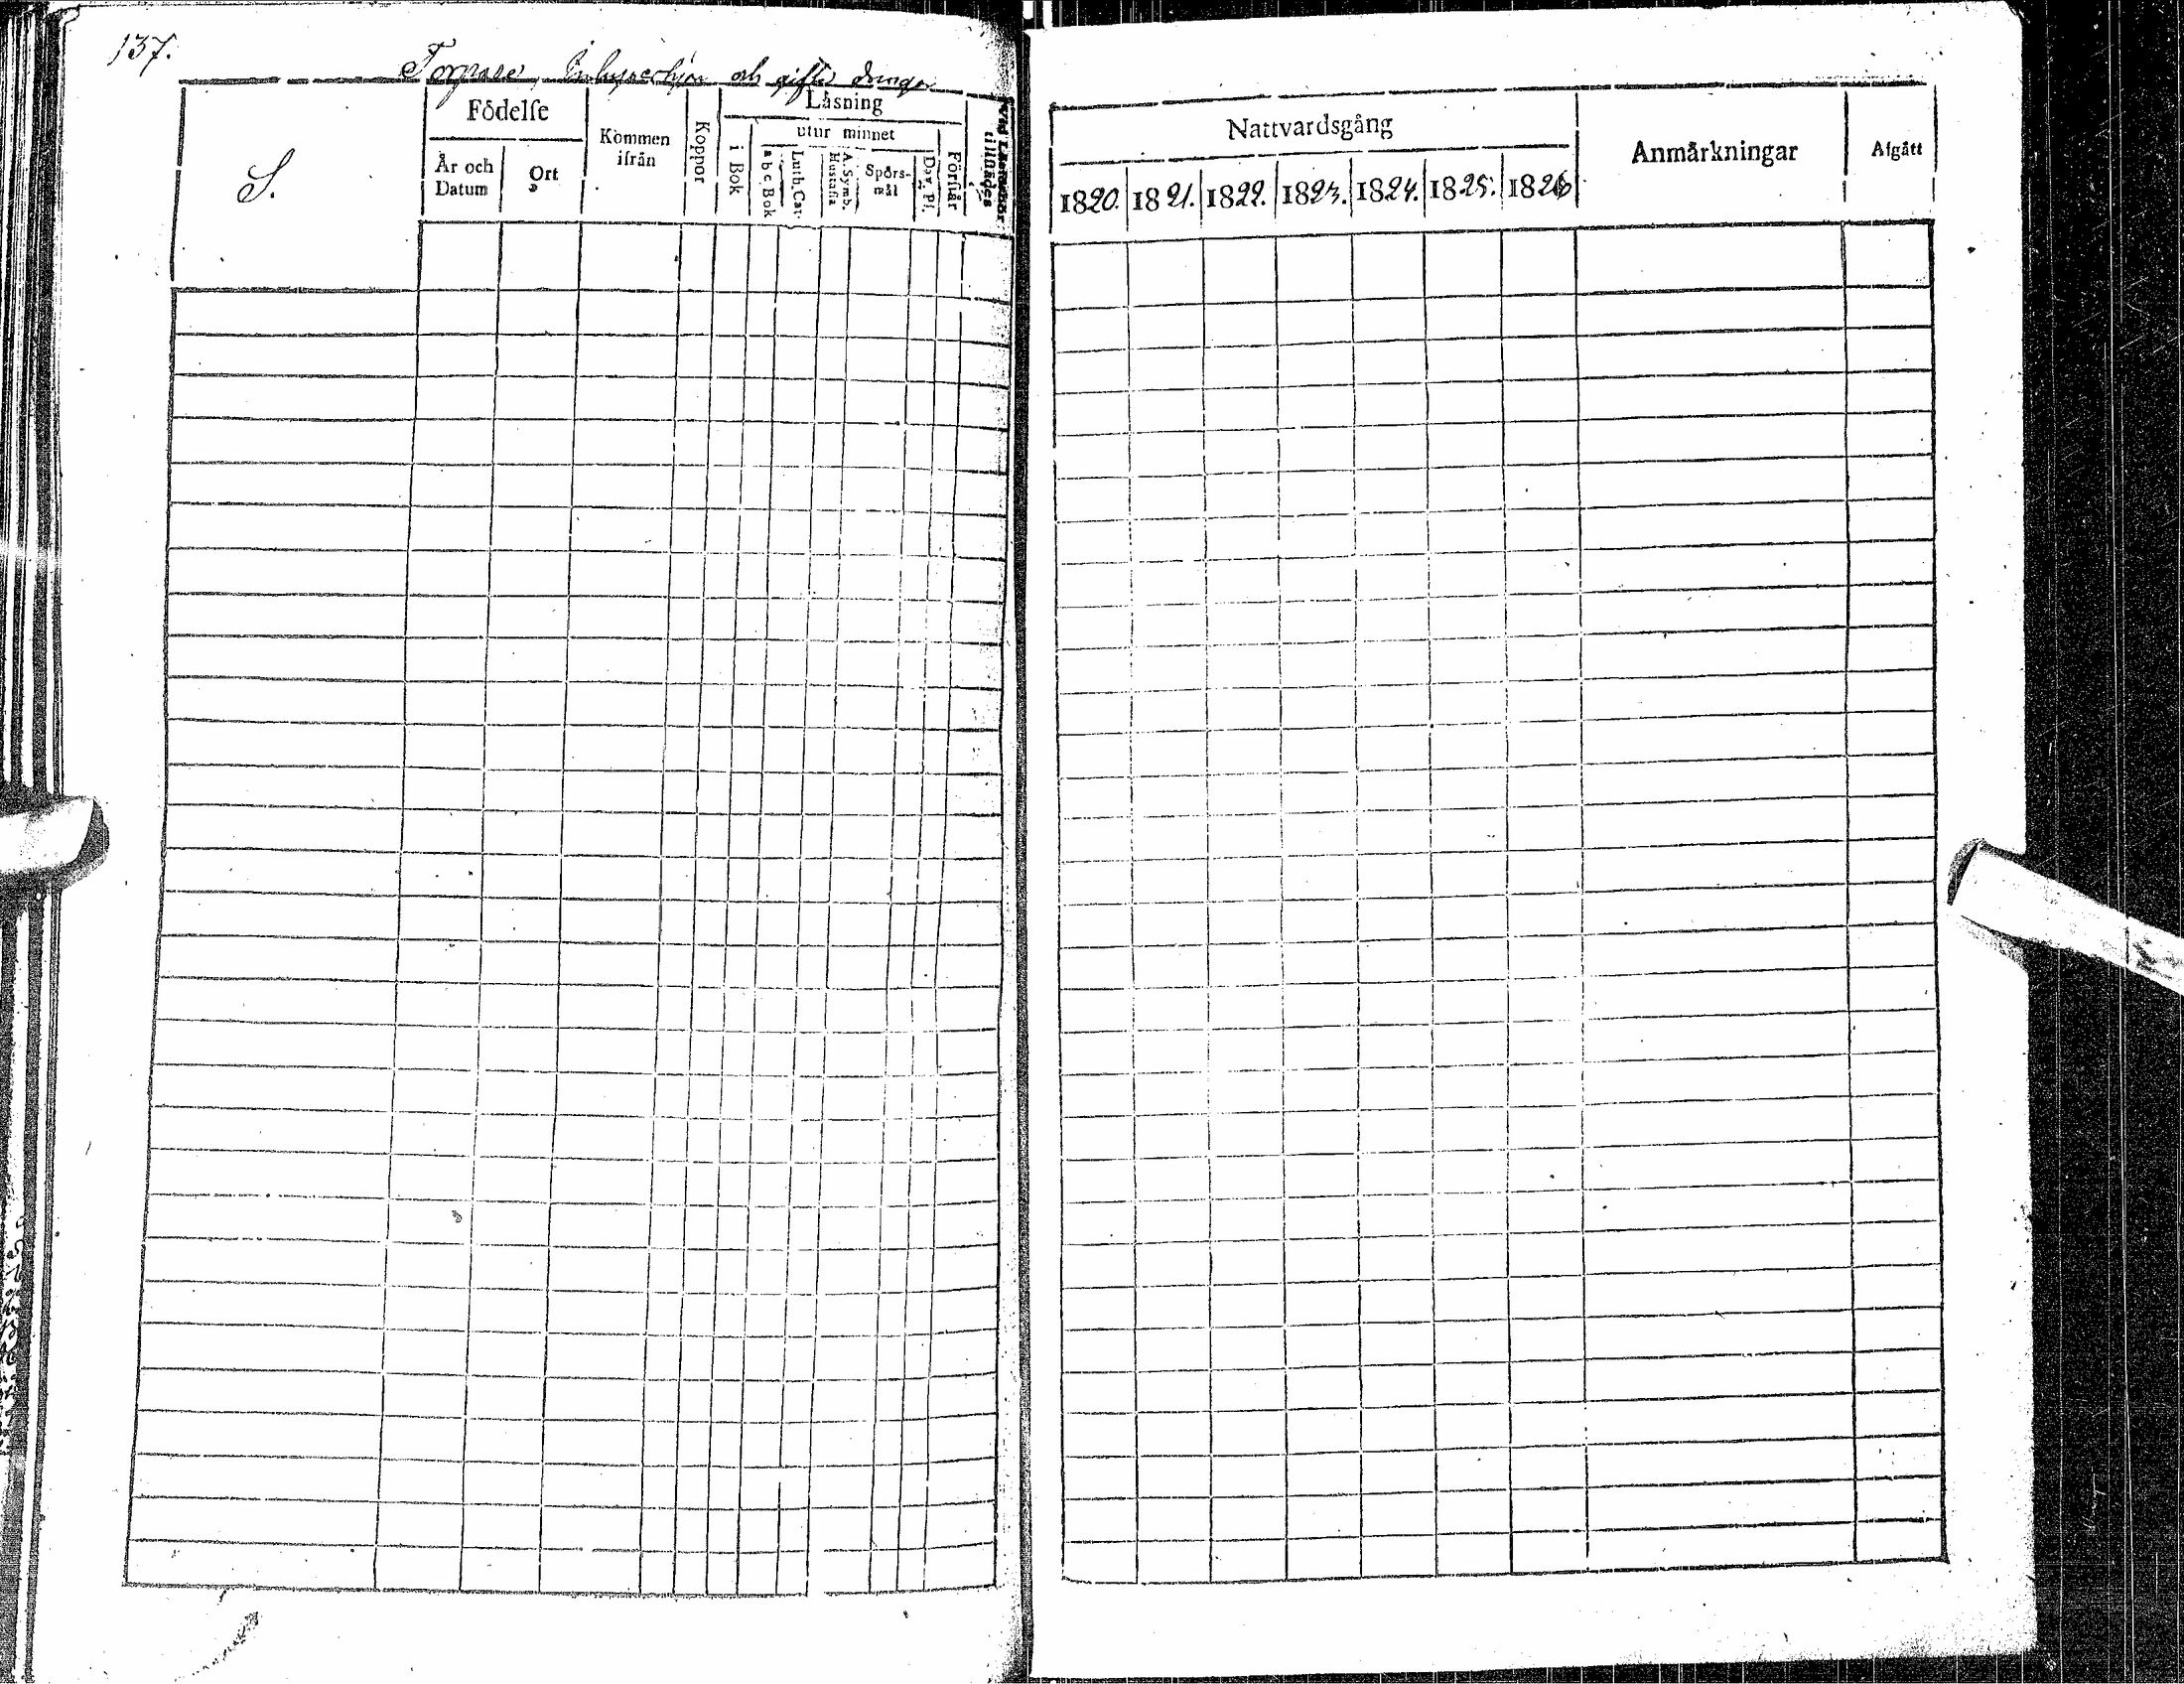 137.
Torpare, Inhyseshjon och gifte drengar
S.
Födelse
År och Datum
Ort
Kommen ifrån
Koppor
Läsning
i Bok
utur minnet
a b c Bok
Luth. Cat.
A. Symb. Hustafla
Spörsmål
Dav. Ps.
Förstår
Vid Läsförhör tillstädes
Nattvardsgång
1820. 1821. 1822. 1823. 1824. 1825. 1826
Anmärkningar
Afgått